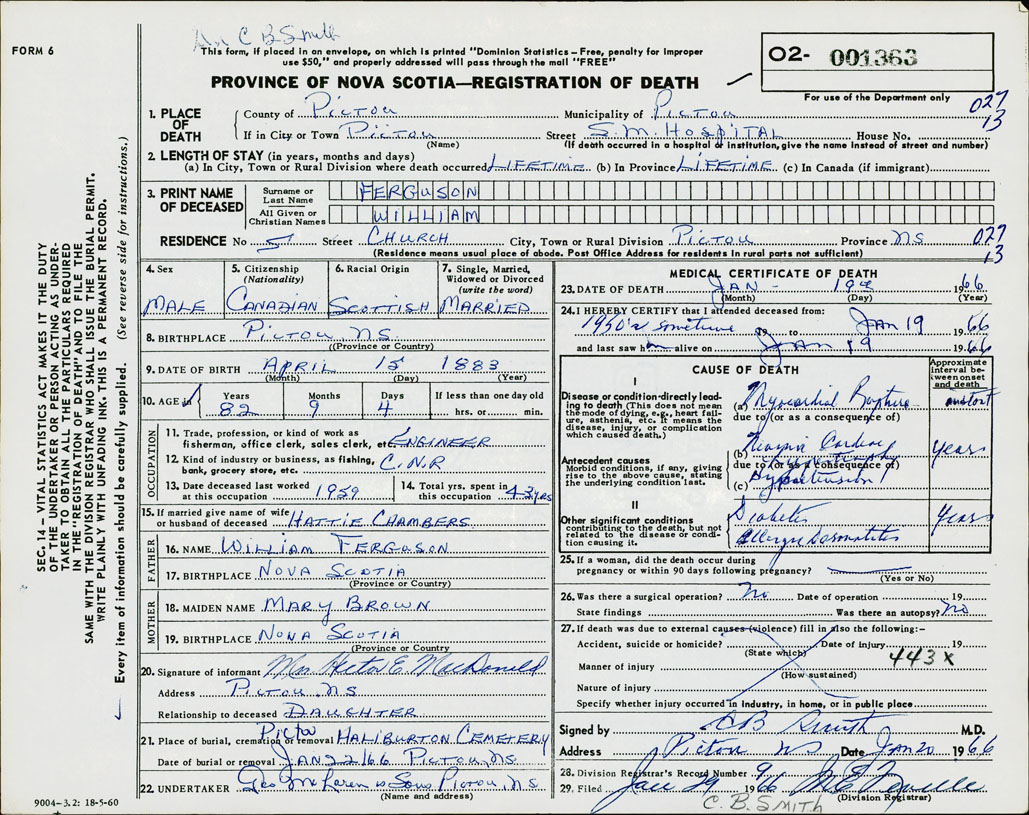 Dr C B Smith
FORM 6
This form, if placed in an envelope, on which is printed "Dominion Statistics – Free, penalty for improper
use $50," and properly addressed will pass through the mail "FREE"
PROVINCE OF NOVA SCOTIA—REGISTRATION OF DEATH
02- 001363
For use of the Department only
027
13
1. PLACE OF DEATH
County of Pictou Municipality of Pictou
If in City or Town Pictou Street S.M. HOSPITAL House No.
(Name) (If death occurred in a hospital or institution, give the name instead of street and number)
2. LENGTH OF STAY (in years, months and days)
(a) In City, Town or Rural Division where death occurred LIFETIME (b) In Province LIFETIME (c) In Canada (if immigrant)
3. PRINT NAME OF DECEASED
Surname or Last Name FERGUSON
All Given or Christian Names WILLIAM
RESIDENCE No 51 Street CHURCH City, Town or Rural Division PICTOU Province NS
(Residence means usual place of abode. Post Office Address for residents in rural parts not sufficient)
027
13
4. Sex MALE
5. Citizenship (Nationality) CANADIAN
6. Racial Origin SCOTTISH
7. Single, Married, Widowed or Divorced (write the word) MARRIED
8. BIRTHPLACE PICTOU, N.S.
(Province or Country)
9. DATE OF BIRTH APRIL 15 1883
(Month) (Day) (Year)
10. AGE in Years 82 Months 9 Days 4 If less than one day old hrs. or min.
OCCUPATION
11. Trade, profession, or kind of work as
fisherman, office clerk, sales clerk, etc. ENGINEER
12. Kind of industry or business, as fishing,
bank, grocery store, etc. C.N.R
13. Date deceased last worked
at this occupation 1959
14. Total yrs. spent in
this occupation 43 yrs
15. If married give name of wife
or husband of deceased HATTIE CHAMBERS
FATHER
16. NAME WILLIAM FERGUSON
17. BIRTHPLACE NOVA SCOTIA
(Province or Country)
MOTHER
18. MAIDEN NAME MARY BROWN
19. BIRTHPLACE NOVA SCOTIA
(Province or Country)
20. Signature of informant Mrs. Hector E. MacDonald
Address PICTOU, NS
Relationship to deceased DAUGHTER
21. Place of burial, cremation or removal Pictou HALIBURTON CEMETERY
Date of burial or removal JAN 22 66 PICTOU, NS
22. UNDERTAKER Geo McLaren & Sons Pictou, N.S.
(Name and address)
9004–3.2: 18-5-60
MEDICAL CERTIFICATE OF DEATH
23. DATE OF DEATH JAN - 19th 1966
(Month) (Day) (Year)
24. I HEREBY CERTIFY that I attended deceased from:
1950's sometime 19 to Jan 19 1966
and last saw him alive on Jan 19 1966
CAUSE OF DEATH
Approximate interval between onset and death
I
Disease or condition directly leading to death (This does not mean
the mode of dying, e.g., heart failure, asthenia, etc. It means the
disease, injury, or complication
which caused death.)
(a) Myocardial Rupture
due to (or as a consequence of)
Antecedent causes
Morbid conditions, if any, giving
rise to the above cause, stating
the underlying condition last.
(b) Cardiac Hypertrophy years
due to (or as a consequence of)
(c) Hypertension
II
Other significant conditions
contributing to the death, but not
related to the disease or condition causing it.
Diabetes years
Allergic Dermatitis
25. If a woman, did the death occur during
pregnancy or within 90 days following pregnancy?
(Yes or No)
26. Was there a surgical operation? No Date of operation 19
State findings Was there an autopsy? No
27. If death was due to external causes (violence) fill in also the following:–
Accident, suicide or homicide? Date of injury 19
(State which)
443x
Manner of injury
(How sustained)
Nature of injury
Specify whether injury occurred in industry, in home, or in public place
Signed by CB Smith M.D.
Address Pictou NS Date Jan 20 1966
28. Division Registrar's Record Number 9
29. Filed Jan 29 1966
(Division Registrar)
C. B. SMITH
SEC. 14 – VITAL STATISTICS ACT MAKES IT THE DUTY
OF THE UNDERTAKER OR PERSON ACTING AS UNDERTAKER TO OBTAIN ALL THE PARTICULARS REQUIRED
IN THE "REGISTRATION OF DEATH" AND TO FILE THE
SAME WITH THE DIVISION REGISTRAR WHO SHALL ISSUE THE BURIAL PERMIT.
WRITE PLAINLY WITH UNFADING INK. THIS IS A PERMANENT RECORD.
Every item of information should be carefully supplied. (See reverse side for instructions.)